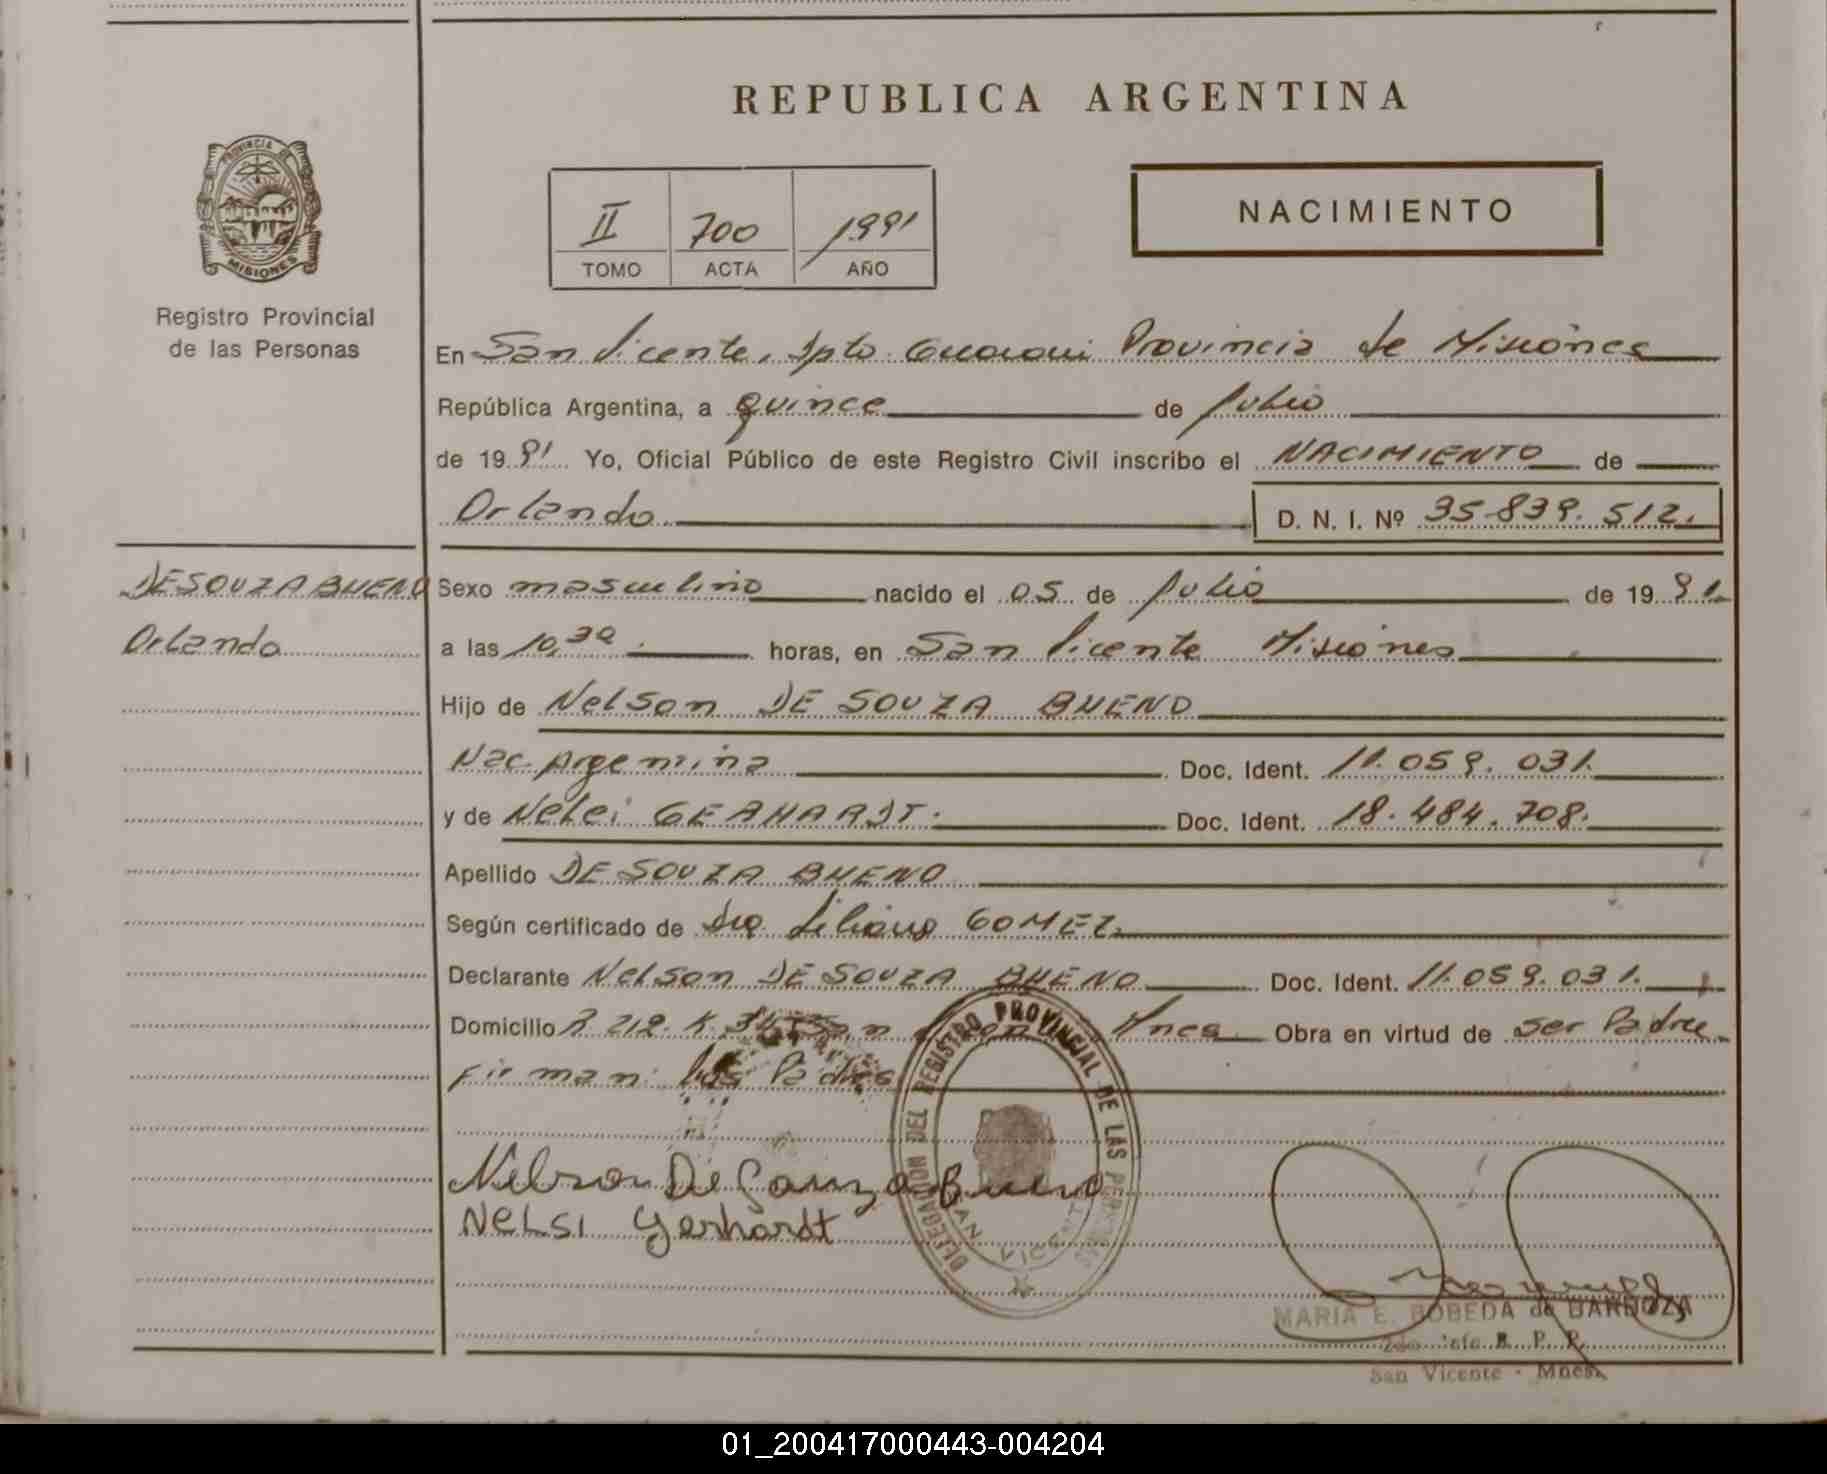 REPUBLICA ARGENTINA
PROVINCIA DE
MISIONES
Registro Provincial
de las Personas
II 700 1991
TOMO ACTA AÑO
NACIMIENTO
En San Vicente, Dpto. Guarani Provincia de Misiones
República Argentina, a quince de Julio
de 1991 Yo, Oficial Público de este Registro Civil inscribo el NACIMIENTO de
Orlando D. N. I. Nº 35.839.512.
DE SOUZA BUENO
Orlando
Sexo masculino nacido el 05 de Julio de 1991
a las 10,30 horas, en San Vicente Misiones
Hijo de Nelson DE SOUZA BUENO
Nac. Argentina Doc. Ident. 11.059.031.
y de Nelci GERHARDT. Doc. Ident. 18.484.708.
Apellido DE SOUZA BUENO
Según certificado de Dra. Liliana GOMEZ.
Declarante Nelson DE SOUZA BUENO Doc. Ident. 11.059.031.
Domicilio R 212. K. San Mnes. Obra en virtud de ser Padre.
Firman: los Padres
DELEGACION DEL REGISTRO PROVINCIAL DE LAS PERSONAS
SAN VICENTE
Nelson De Souza Bueno
NELSI Gerhardt
MARIA E. BOBEDA de BARBOZA
San Vicente - Mnes.
01_200417000443-004204